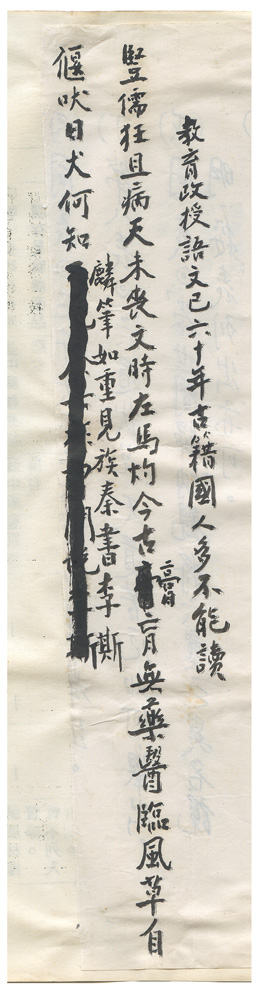 教育改授語文已六十年古籍國人多不能讀
豎儒狂且病天未喪文時左馬灼今古膏肓無藥醫臨風草自
偃吠日犬何知
麟筆如重見族秦書李斯